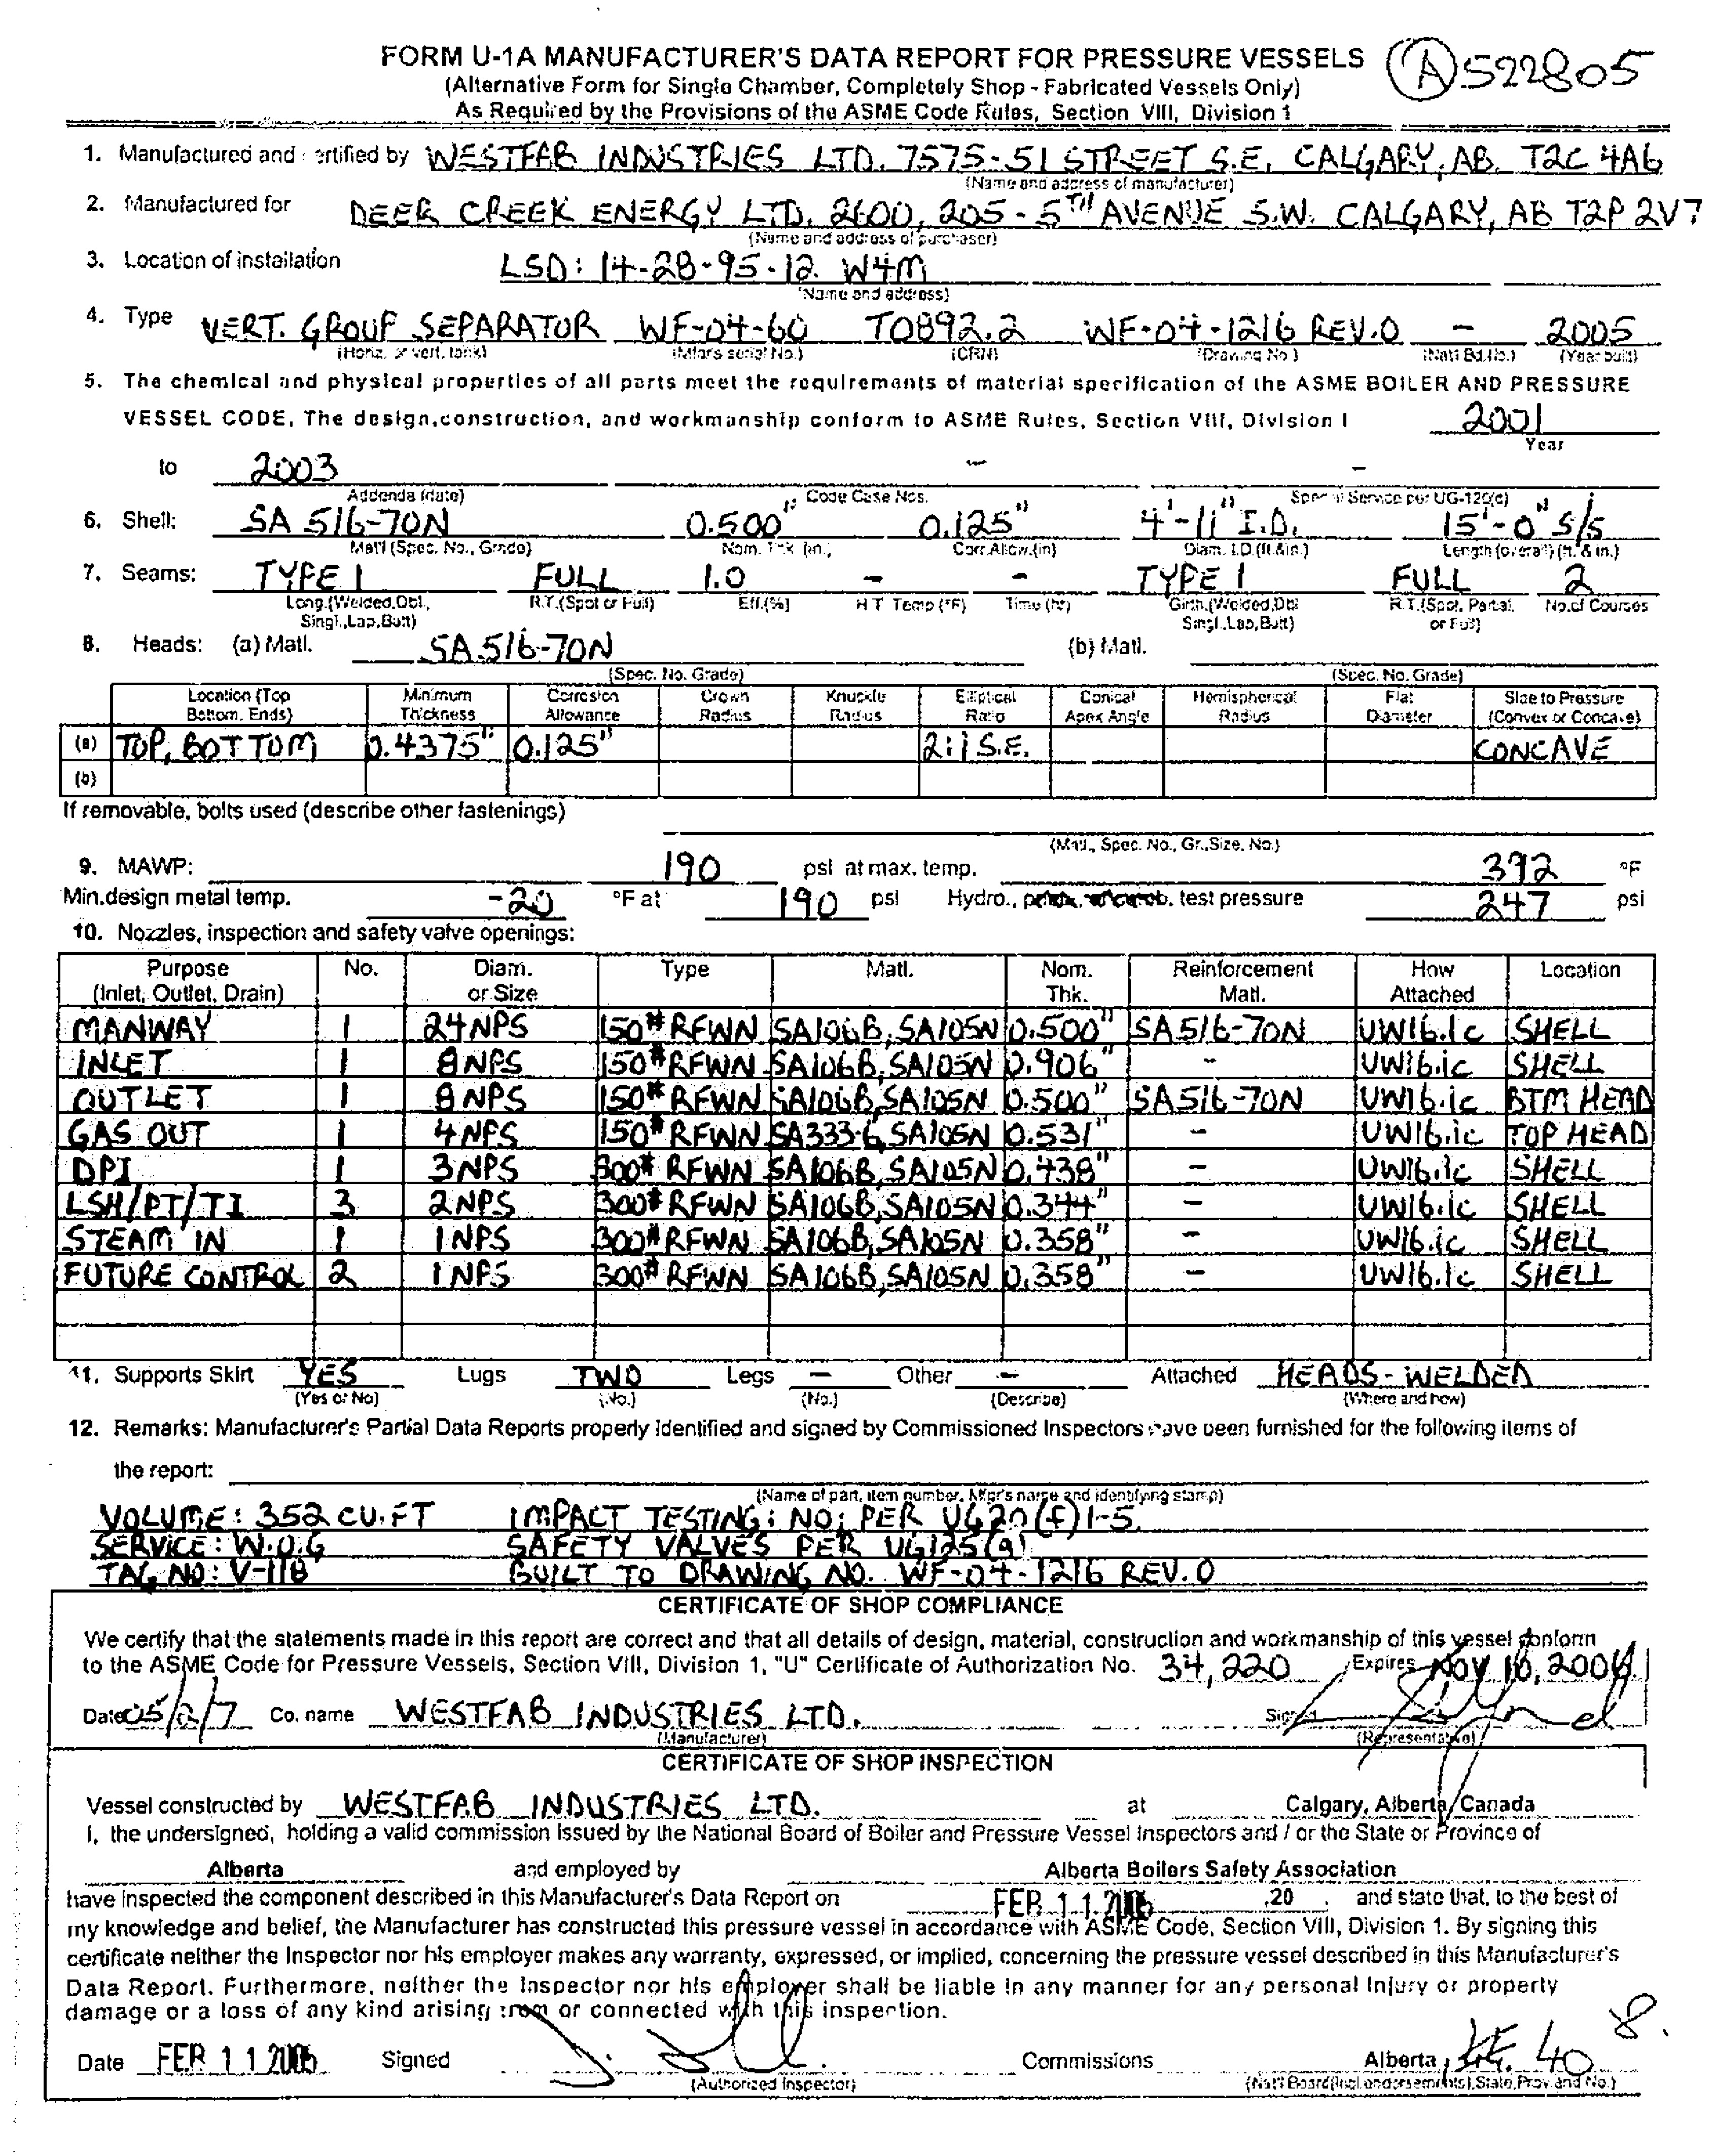 FORM U-1A MANUFACTURER'S DATA REPORT FOR PRESSURE VESSELS A 522805
(Alternative Form for Single Chamber, Completely Shop - Fabricated Vessels Only)
As Required by the Provisions of the ASME Code Rules, Section VIII, Division 1
1. Manufactured and certified by WESTFAB INDUSTRIES LTD. 7575-51 STREET S.E. CALGARY, AB. T2C 4A6
(Name and address of manufacturer)
2. Manufactured for DEER CREEK ENERGY LTD. 2600, 205 - 5TH AVENUE S.W. CALGARY, AB T2P 2V7
(Name and address of purchaser)
3. Location of installation LSD: 14-28-95-12 W4M
(Name and address)
4. Type VERT. GROUP SEPARATOR WF-04-60 T0892.2 WF-04-1216 REV.0 - 2005
(Horiz. or vert. tank) (Mfars serial No.) (CRN) (Drawing No.) (Natl Bd.No.) (Year built)
5. The chemical and physical properties of all parts meet the requirements of material specification of the ASME BOILER AND PRESSURE
VESSEL CODE, The design,construction, and workmanship conform to ASME Rules, Section VIII, Division I 2001
Year
to 2003 - -
Addenda (date) Code Case Nos. Special Service per UG-120(c)
6. Shell: SA 516-70N 0.500" 0.125" 4'-11" I.D. 15'-0" S/S
Mat'l (Spec. No., Grade) Nom. Thk. (in.) Corr.Allow.(in) Diam. I.D.(ft.&in.) Length (overall) (ft. & in.)
7. Seams: TYPE 1 FULL 1.0 - - TYPE 1 FULL 2
Long.(Welded,Dbl., R.T.(Spot or Full) Eff.(%) H T Temp (°F) Time (hr) Girth.(Welded,Dbl R.T.(Spot, Partial, No.of Courses
Singl.,Lap,Butt) Singl.,Lap,Butt) or Full)
8. Heads: (a) Matl. SA 516-70N (b) Matl.
(Spec. No. Grade) (Spec. No. Grade)
Location (Top Minimum Corrosion Crown Knuckle Elliptical Conical Hemispherical Flat Side to Pressure
Bottom, Ends) Thickness Allowance Radius Radius Ratio Apex Angle Radius Diameter (Convex or Concave)
(a) TOP, BOTTOM 0.4375" 0.125" 2:1 S.E. CONCAVE
(b)
If removable, bolts used (describe other fastenings)
(Matl., Spec. No., Gr.,Size, No.)
9. MAWP: 190 psi at max. temp. 392 °F
Min.design metal temp. -20 °F at 190 psi Hydro., test pressure 247 psi
10. Nozzles, inspection and safety valve openings:
Purpose No. Diam. Type Matl. Nom. Reinforcement How Location
(Inlet, Outlet, Drain) or Size Thk. Matl. Attached
MANWAY 1 24 NPS 150# RFWN SA106B, SA105N 0.500" SA516-70N UW16.1c SHELL
INLET 1 8 NPS 150# RFWN SA106B, SA105N 0.906" - UW16.1c SHELL
OUTLET 1 8 NPS 150# RFWN SA106B, SA105N 0.500" SA516-70N UW16.1c BTM HEAD
GAS OUT 1 4 NPS 150# RFWN SA333-6, SA105N 0.531" - UW16.1c TOP HEAD
DPI 1 3 NPS 300# RFWN SA106B, SA105N 0.438" - UW16.1c SHELL
LSH/PT/TI 3 2 NPS 300# RFWN SA106B, SA105N 0.344" - UW16.1c SHELL
STEAM IN 1 1 NPS 300# RFWN SA106B, SA105N 0.358" - UW16.1c SHELL
FUTURE CONTROL 2 1 NPS 300# RFWN SA106B, SA105N 0.358" - UW16.1c SHELL
11. Supports Skirt YES Lugs TWO Legs - Other - Attached HEADS - WELDED
(Yes or No) (No.) (No.) (Describe) (Where and how)
12. Remarks: Manufacturer's Partial Data Reports properly identified and signed by Commissioned Inspectors have been furnished for the following items of
the report:
(Name of part, item number, Mfgr's name and identifying stamp)
VOLUME: 352 CU.FT IMPACT TESTING: NO; PER UG20(f)1-5.
SERVICE: W.O.G SAFETY VALVES PER UG125(a)
TAG NO: V-118 BUILT TO DRAWING NO. WF-04-1216 REV.0
CERTIFICATE OF SHOP COMPLIANCE
We certify that the statements made in this report are correct and that all details of design, material, construction and workmanship of this vessel conform
to the ASME Code for Pressure Vessels, Section VIII, Division 1, "U" Certificate of Authorization No. 34,220 Expires NOV 18, 2006.
Date 05/2/7 Co. name WESTFAB INDUSTRIES LTD. Signed
(Manufacturer) (Representative)
CERTIFICATE OF SHOP INSPECTION
Vessel constructed by WESTFAB INDUSTRIES LTD. at Calgary, Alberta, Canada
I, the undersigned, holding a valid commission issued by the National Board of Boiler and Pressure Vessel Inspectors and / or the State or Province of
Alberta and employed by Alberta Boilers Safety Association
have inspected the component described in this Manufacturer's Data Report on FEB 11 ,20 and state that, to the best of
my knowledge and belief, the Manufacturer has constructed this pressure vessel in accordance with ASME Code, Section VIII, Division 1. By signing this
certificate neither the Inspector nor his employer makes any warranty, expressed, or implied, concerning the pressure vessel described in this Manufacturer's
Data Report. Furthermore, neither the Inspector nor his employer shall be liable in any manner for any personal injury or property
damage or a loss of any kind arising from or connected with this inspection.
Date FEB 11 Signed Commissions Alberta, 40 8.
(Authorized Inspector) (Nat'l Board(Incl.endorsements),State,Prov.and No.)